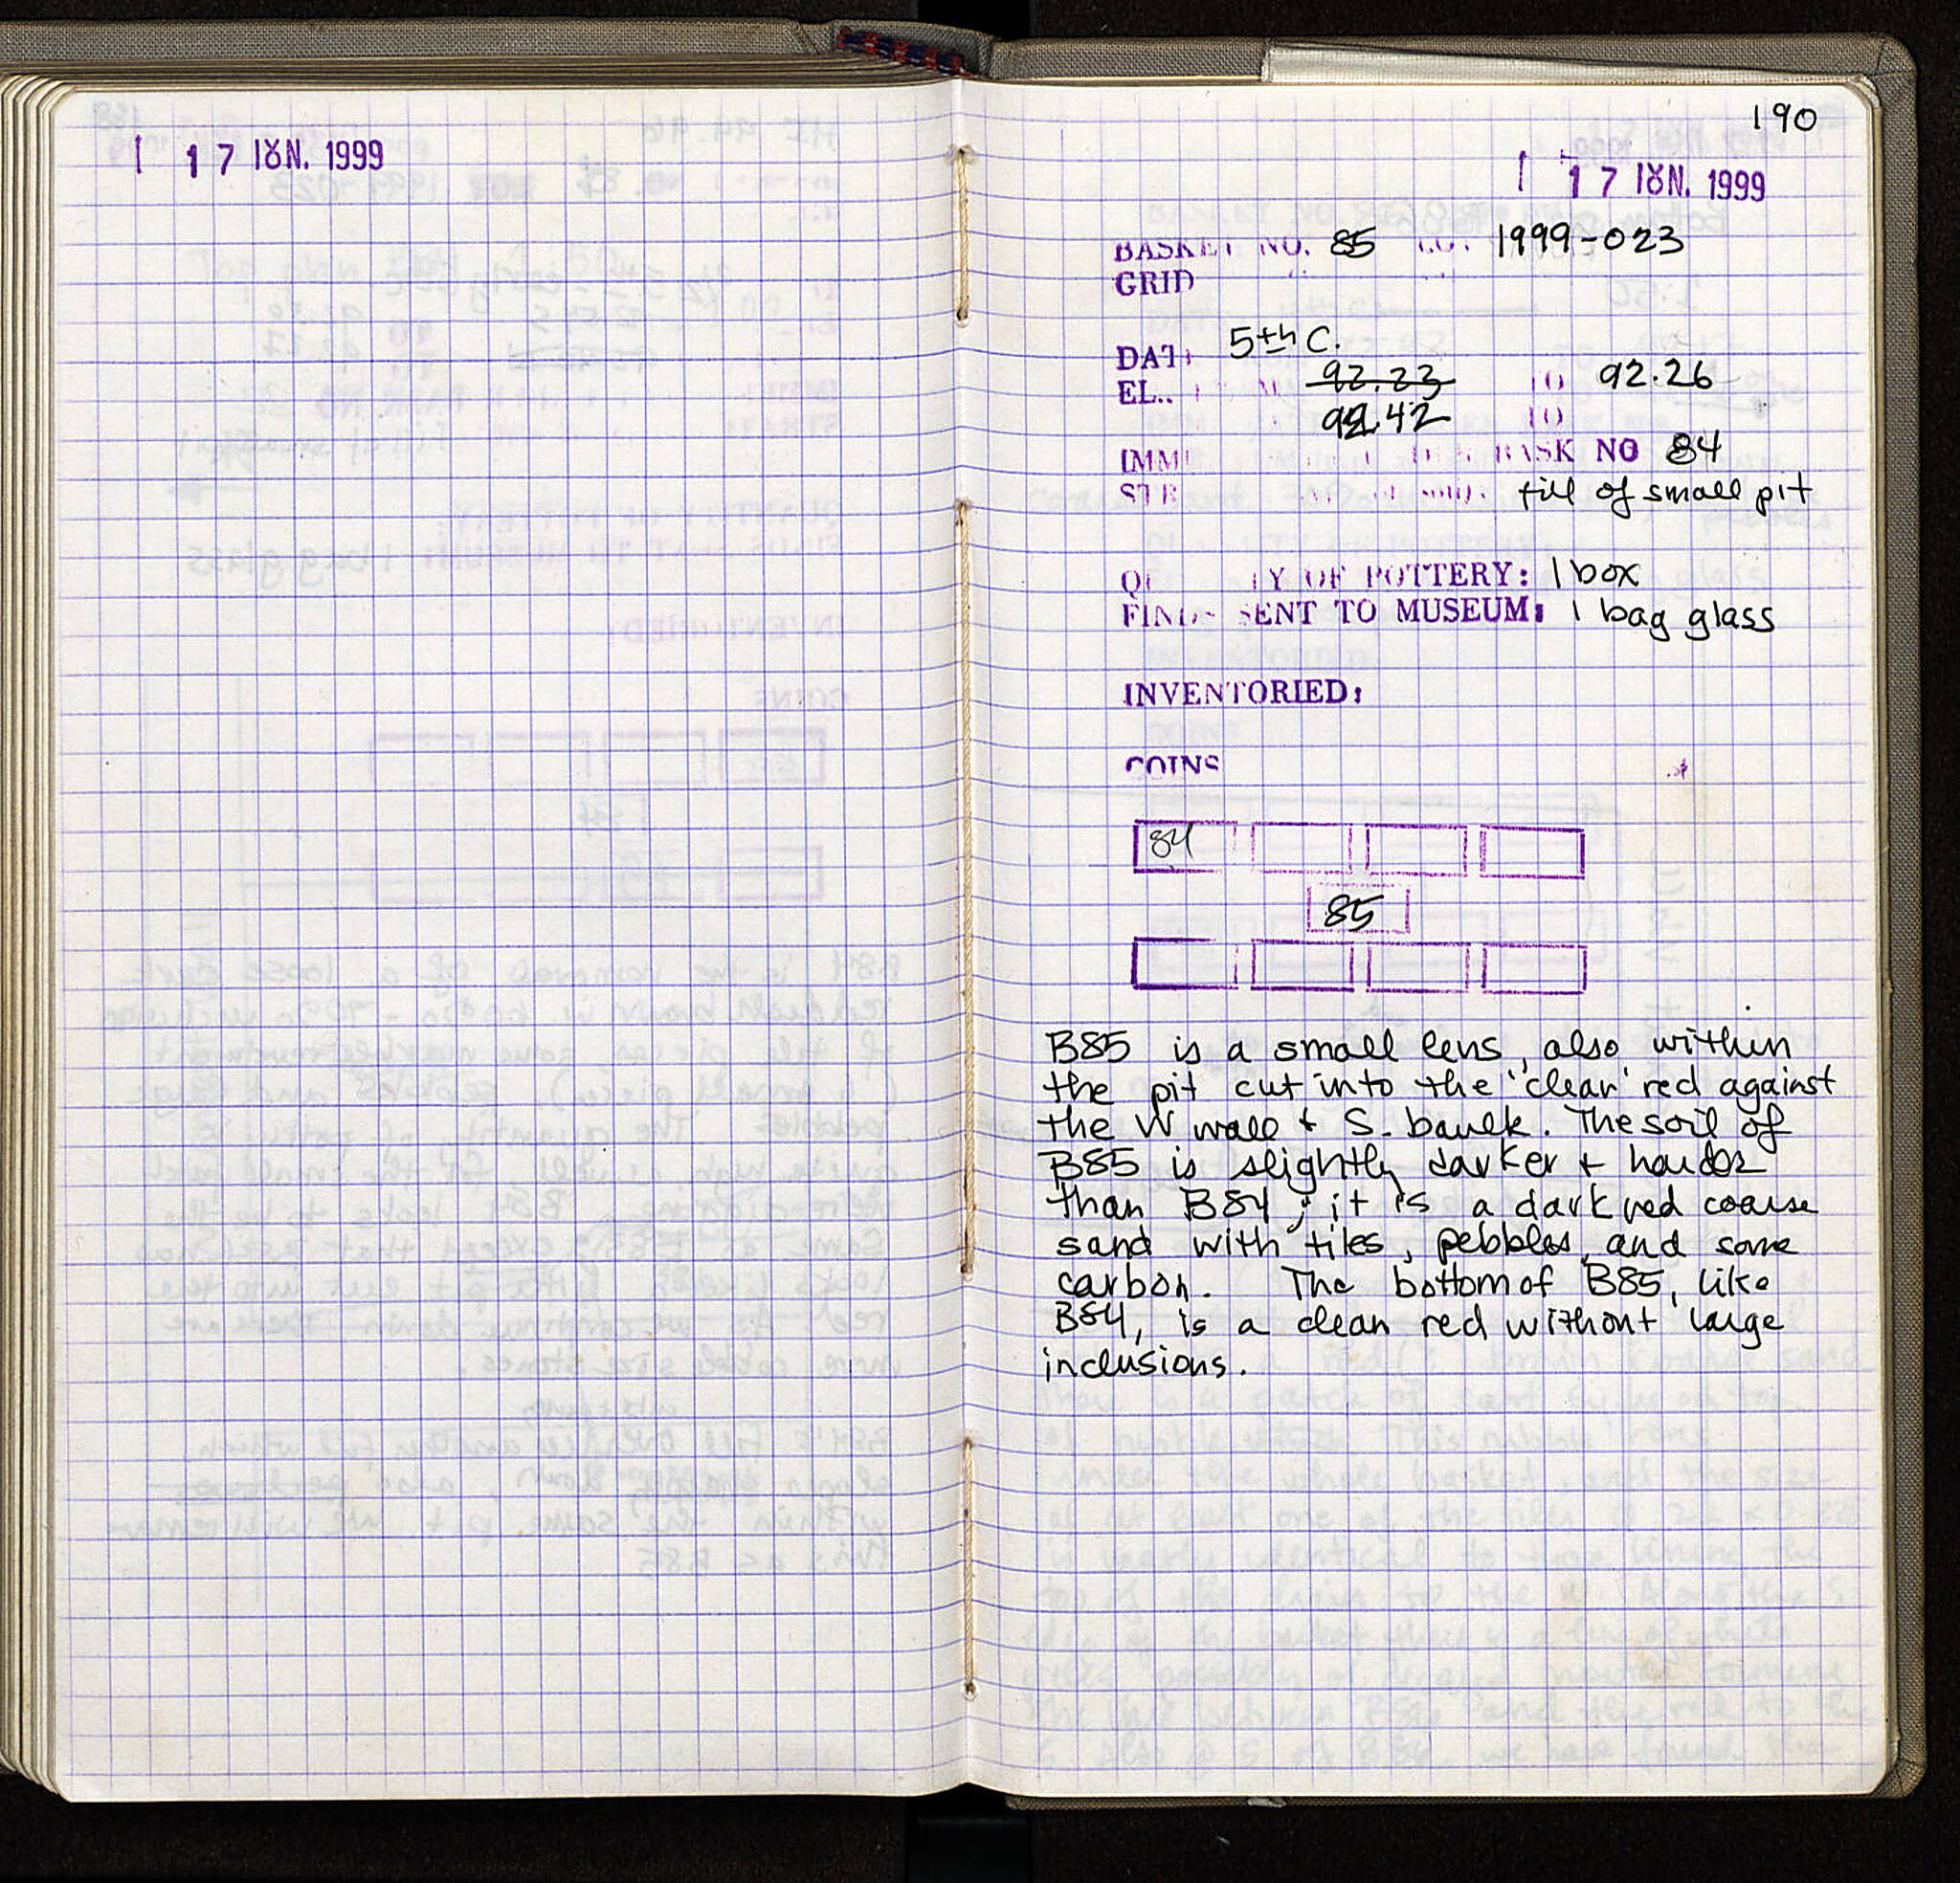 17 ΙΟΥΝ. 1999
190
17 ΙΟΥΝ. 1999
BASKET NO. 85 LOT 1999-023
GRID
5th C.
DATE
EL. 92.23 TO 92.26
92.42 TO
BASK NO 84
fill of small pit
QUANTITY OF POTTERY: 1 box
FINDS SENT TO MUSEUM: 1 bag glass
INVENTORIED:
COINS
84
85
B85 is a small lens, also within
the pit cut into the "clear' red against
the W. wall + S. baulk. The soil of
B85 is slightly darker + harder
than B84; it is a dark red coarse
sand with tiles, pebbles, and some
carbon. The bottom of B85, like
B84, is a clean red without large
inclusions.